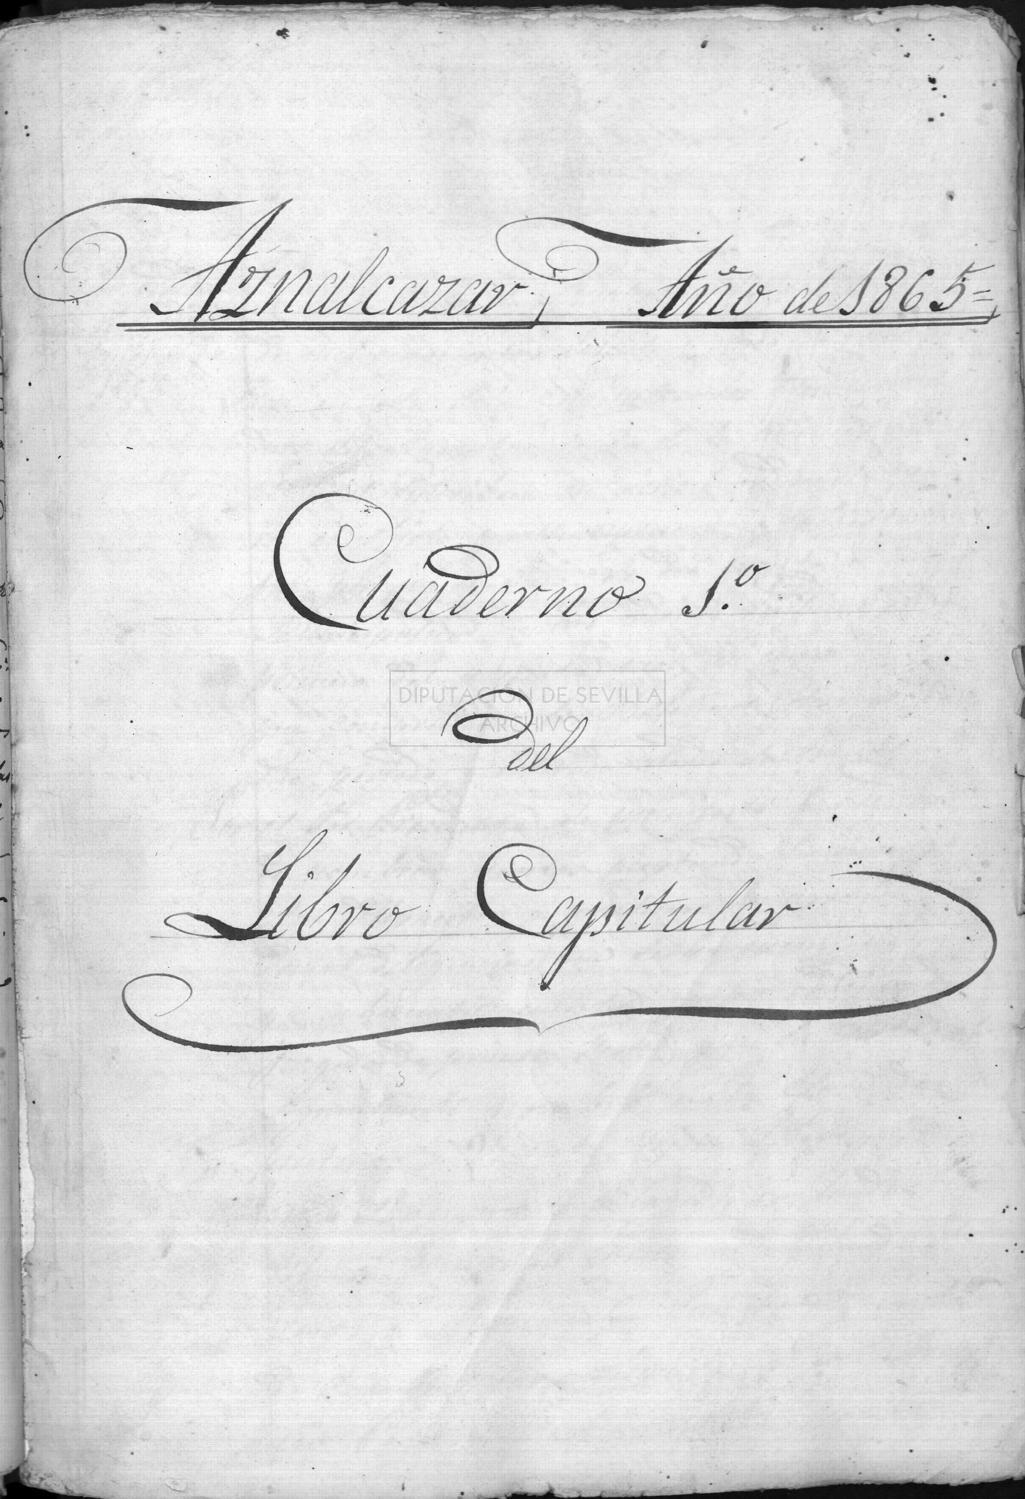 Aznalcazar, Año de 1865=
Cuaderno 1.º
DIPUTACIÓN DE SEVILLA
ARCHIVO
del
Libro Capitular